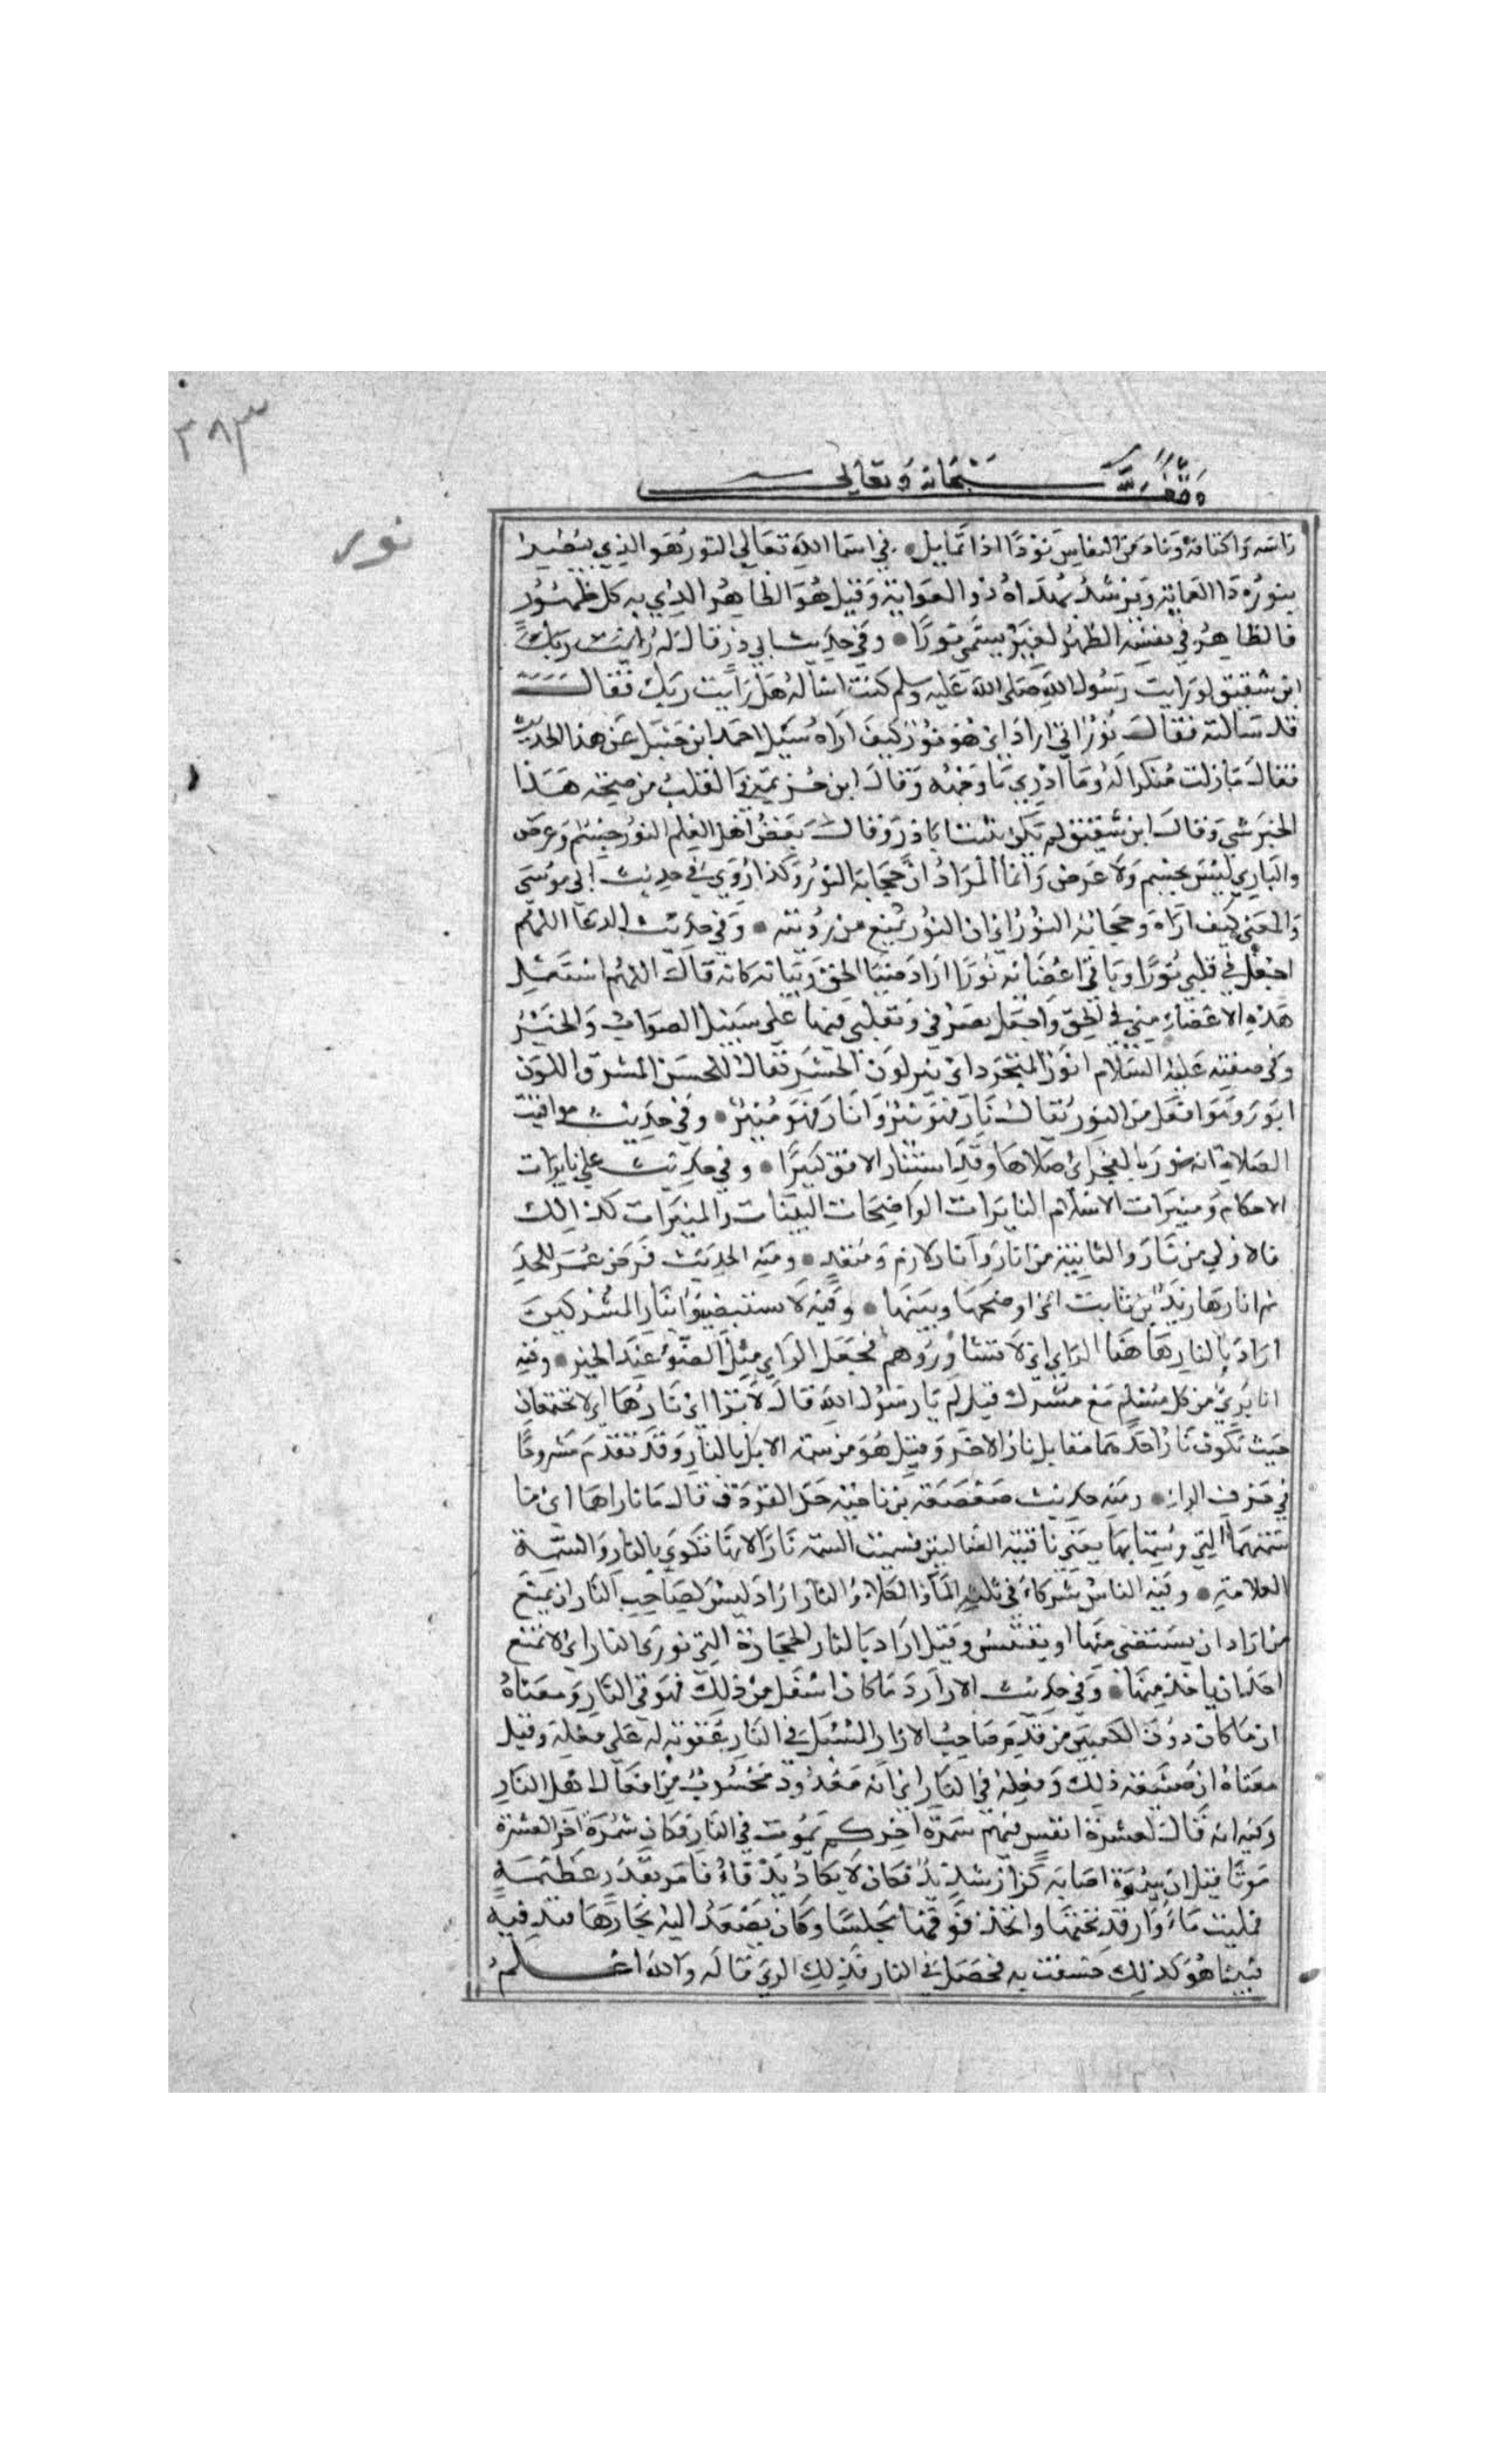 ٢٨٣
وقف لله سبحانه وتعالى
نور
راسه واكتافه وناد من النعاس نودا اذا تمايل في اسما الله تعالى النور هو الذي يبصر
بنوره ذا العماية ويرشد بهداه ذو الغواية وقيل هو الظاهر الذي به كل ظهور
فالظاهر في نفسه المظهر لغيره يسمى نورا وفي حديث ابي ذر قال له
ابن شقيق لو رايت رسول الله صلى الله عليه وسلم كنت اساله هل رايت ربك فقال
قد سالته فقال نور اني اراه اي هو نور كيف اراه سئيل احمد ابن حنبل عن هذا الحديث
فقال ما زلت منكرا له وما ادري ما وجهه وقال ابن خزيمة في القلب من صحة هذا
الخبر شي وقال ابن شقيق لم يكن يثبت ابا ذر وقال بعض اهل العلم النور جسم وعرض
والباري ليس بجسم ولا عرض وانما المراد ان حجابه النور وكذا روي في حديث ابي موسى
والمعنى كيف اراه وحجابه النور اي ان النور يمنع من رويته وفي حديث الدعا اللهم
اجعل في قلبي نورا وباقي اعضائه نورا اراد ضيا الحق وبيانه كانه قال اللهم استعمل
هذه الاعضاء مني في الحق واجعل تصرفي وتقلبي فيها على سبيل الصواب والخير
وفي صفته عليه السلام انور المتجرد اي نير لون الجسد يقال للحسن المشرق اللون
انور وهو افعل من النور يقال نار فهو نير وانار فهو منير وفي حديث مواقيت
الصلاة انه نور بالفجر اي صلاها وقد استنار الافق كبيرا وفي حديث علي نايرات
الاحكام ومنيرات الاسلام النايرات الواضحات البينات والمنيرات كذالك
فالاولي من نار والثانية من انار وانار لازم ومتعد ومنه الحديث فرض عمر للجد
ثم انارها زيد بن ثابت اي اوضحها وبينها وفيه لا تستضيوا بنار المشركين
اراد بالنار هاهنا الراي اي لا تشاوروهم فجعل الراي مثل الضوء عند الحير وفيه
انا بري من كل مسلم مع مشرك قيل لم يا رسول الله قال لا تترا اي ناراهما اي لا تجتمعان
حيث تكون نار احدهما مقابل نار الاخر وقيل هو من سمة الابل بالنار وقد تقدم مشروحا
في حرف الراء ومنه حديث صعصعة بن ناجيه جد الفرزدق قال ما ناراها اي ما
سمتهما التي وسمتا بها يعني ناقتيه الضالتين فسميت السمة نارا لانها تكوي بالنار والسمة
العلامة وفيه الناس شركاء في ثلث الماء والكلاء والنار اراد ليس لصاحب النار ان يمنع
من اراد ان يستضي منها او يقتبس وقيل اراد بالنار الحجارة التي توري النار اي لا تمنع
احد ان ياخذ منها وفي حديث الازار وما كان اسفل من ذلك فهو في النار ومعناه
ان ما كان دون الكعبين من قدم صاحب الازار المسبل في النار عقوبة له على فعله وقيل
معناه ان صنيعه ذلك وفعله في النار اي انه معدود محسوب من افعال اهل النار
وفيه انه قال لعشرة انفس فيهم سمرة اخركم يموت في النار فكان سمرة اخر العشرة
موتا قيل ان سمرة اصابه كزاز شديد فكان لا يكاد يدفاء فامر بقدر عظيمة
فمليت ماء واوقد تحتها واتخذ فوقها مجلسا وكان يصعد اليه بخارها فيدفيه
فبينا هو كذلك خسفت به فحصل في النار فذلك الذي قال له والله اعلم